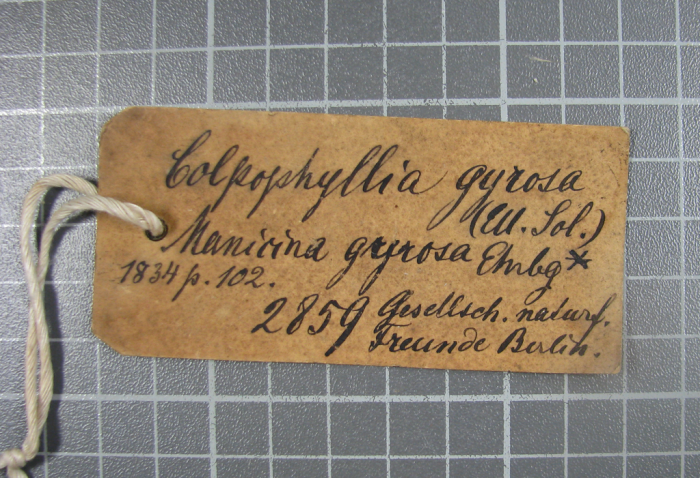 Colpophyllia gyrosa
(Ell. Sol.)
Manicina gyrosa Ehrbg*
1834 p. 102.
2859 Gesellsch. naturf.
Freunde Berlin.